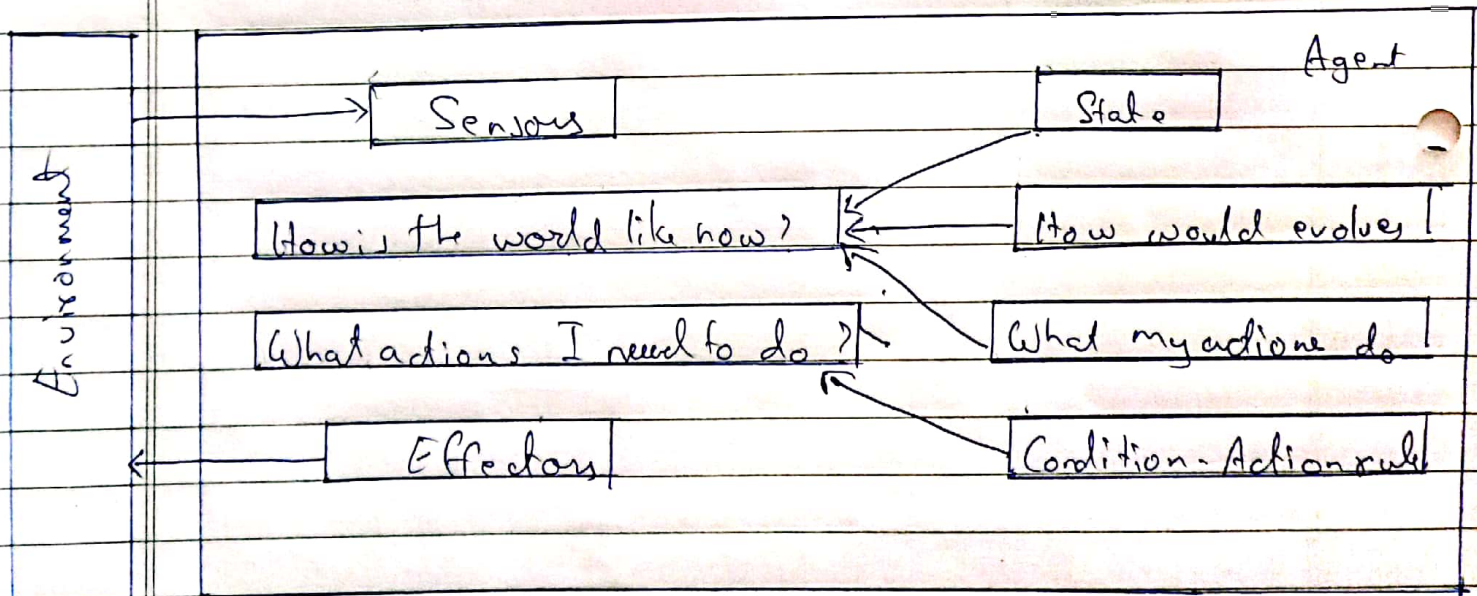 Agent
Sensors
State
Environment
How is the world like now?
How would evolves
What actions I need to do?
What my actions do
Effectors
Condition-Action rule